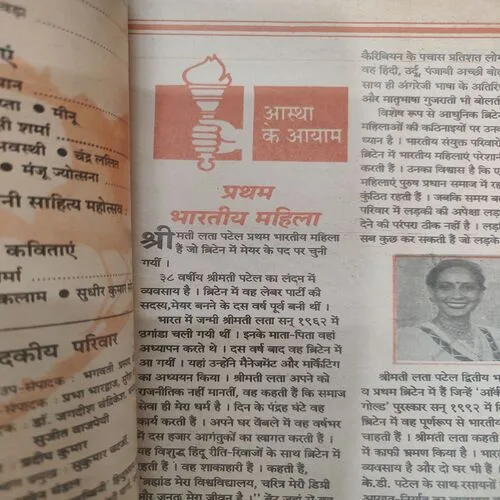 वड़ा
एं
यान
प्ता ● मीनू
री शर्मा
अवस्थी ● चंद्र ललित
● मंजू ज्योत्सना
नी साहित्य महोत्सव :
कविताएं
शर्मा
कलाम ● सुधीर कुमार
दकीय परिवार
उप-संपादक : भगवती प्रसाद
संपादक : प्रभा भारद्वाज,
: डॉ. जगदीश चंद्रिकेश,
सुजीत वाजपेयी
प्रदीप कुमार
आस्था
के आयाम
प्रथम
भारतीय महिला
श्रीमती लता पटेल प्रथम भारतीय महिला
हैं जो ब्रिटेन में मेयर के पद पर चुनी
गयीं ।
३८ वर्षीय श्रीमती पटेल का लंदन में
व्यवसाय है । ब्रिटेन में वह लेबर पार्टी की
सदस्य,मेयर बनने के दस वर्ष पूर्व बनी थीं ।
भारत में जन्मी श्रीमती लता सन् १९६२ में
उगांडा चली गयी थीं । इनके माता-पिता वहां
अध्यापन करते थे । दस वर्ष बाद वह ब्रिटेन में
आ गयीं । यहां उन्होंने मैनेजमेंट और मार्किटिंग
का अध्ययन किया । श्रीमती लता अपने को
राजनीतिक नहीं मानतीं, वह कहती हैं कि समाज
सेवा ही मेरा धर्म है । दिन के पंद्रह घंटे वह
कार्य करती हैं । अपने घर वेंबले में वह वर्षभर
में दस हजार आगंतुकों का स्वागत करती हैं ।
वह विशुद्ध हिंदू रीति-रिवाजों के साथ ब्रिटेन में
रहती हैं । वह शाकाहारी हैं । कहती हैं,
"ब्रह्मांड मेरा विश्वविद्यालय, चरित्र मेरी डिग्री
और जनता मेरा जीवन है ।"
कैरिबियन के पचास प्रतिशत लोग
वह हिंदी, उर्दू, पंजाबी अच्छी
साथ ही अंगरेजी भाषा के अतिरि
और मातृभाषा गुजराती भी बोलत
विशेष रूप से आधुनिक ब्रिटे
महिलाओं की कठिनाइयों पर उन
ध्यान है । भारतीय संयुक्त परिवारों
ब्रिटेन में भारतीय महिलाएं परेशान
करती हैं । उनका विश्वास है कि ए
महिलाएं पुरुष प्रधान समाज में र
कुंठित रहती हैं । जबकि समय बद
परिवार में लड़की की अपेक्षा लड़
देने की परंपरा ठीक नहीं है । लड़
सब कुछ कर सकती हैं जो लड़के
श्रीमती लता पटेल द्वितीय भा
व प्रथम ब्रिटेन में हैं जिन्हें 'ऑर्
गोल्ड' पुरस्कार सन् १९९२ में
ब्रिटेन में वह पूर्णरूप से भारतीय
चाहती हैं । श्रीमती लता कहती
में काफी भ्रमण किया है । भारत
व्यवसाय है और दो घर भी हैं ।
के.डी. पटेल के साथ-साथ उनक